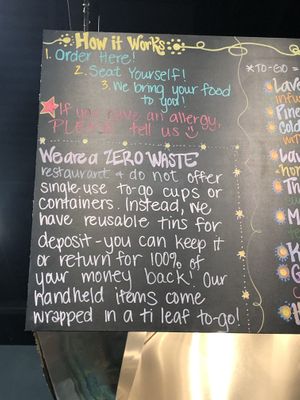 How it Works
1. Order Here!
2. Seat Yourself!
3. We bring your food
to you!
If you have an allergy,
PLEASE tell us
We are a ZERO WASTE
restaurant & do not offer
single-use to-go cups or
containers. Instead, we
have reusable tins for
deposit - you can keep it
or return for 100% of
your money back! Our
handheld items come
wrapped in a ti leaf to-go!
*TO-GO =
Lave
Pine